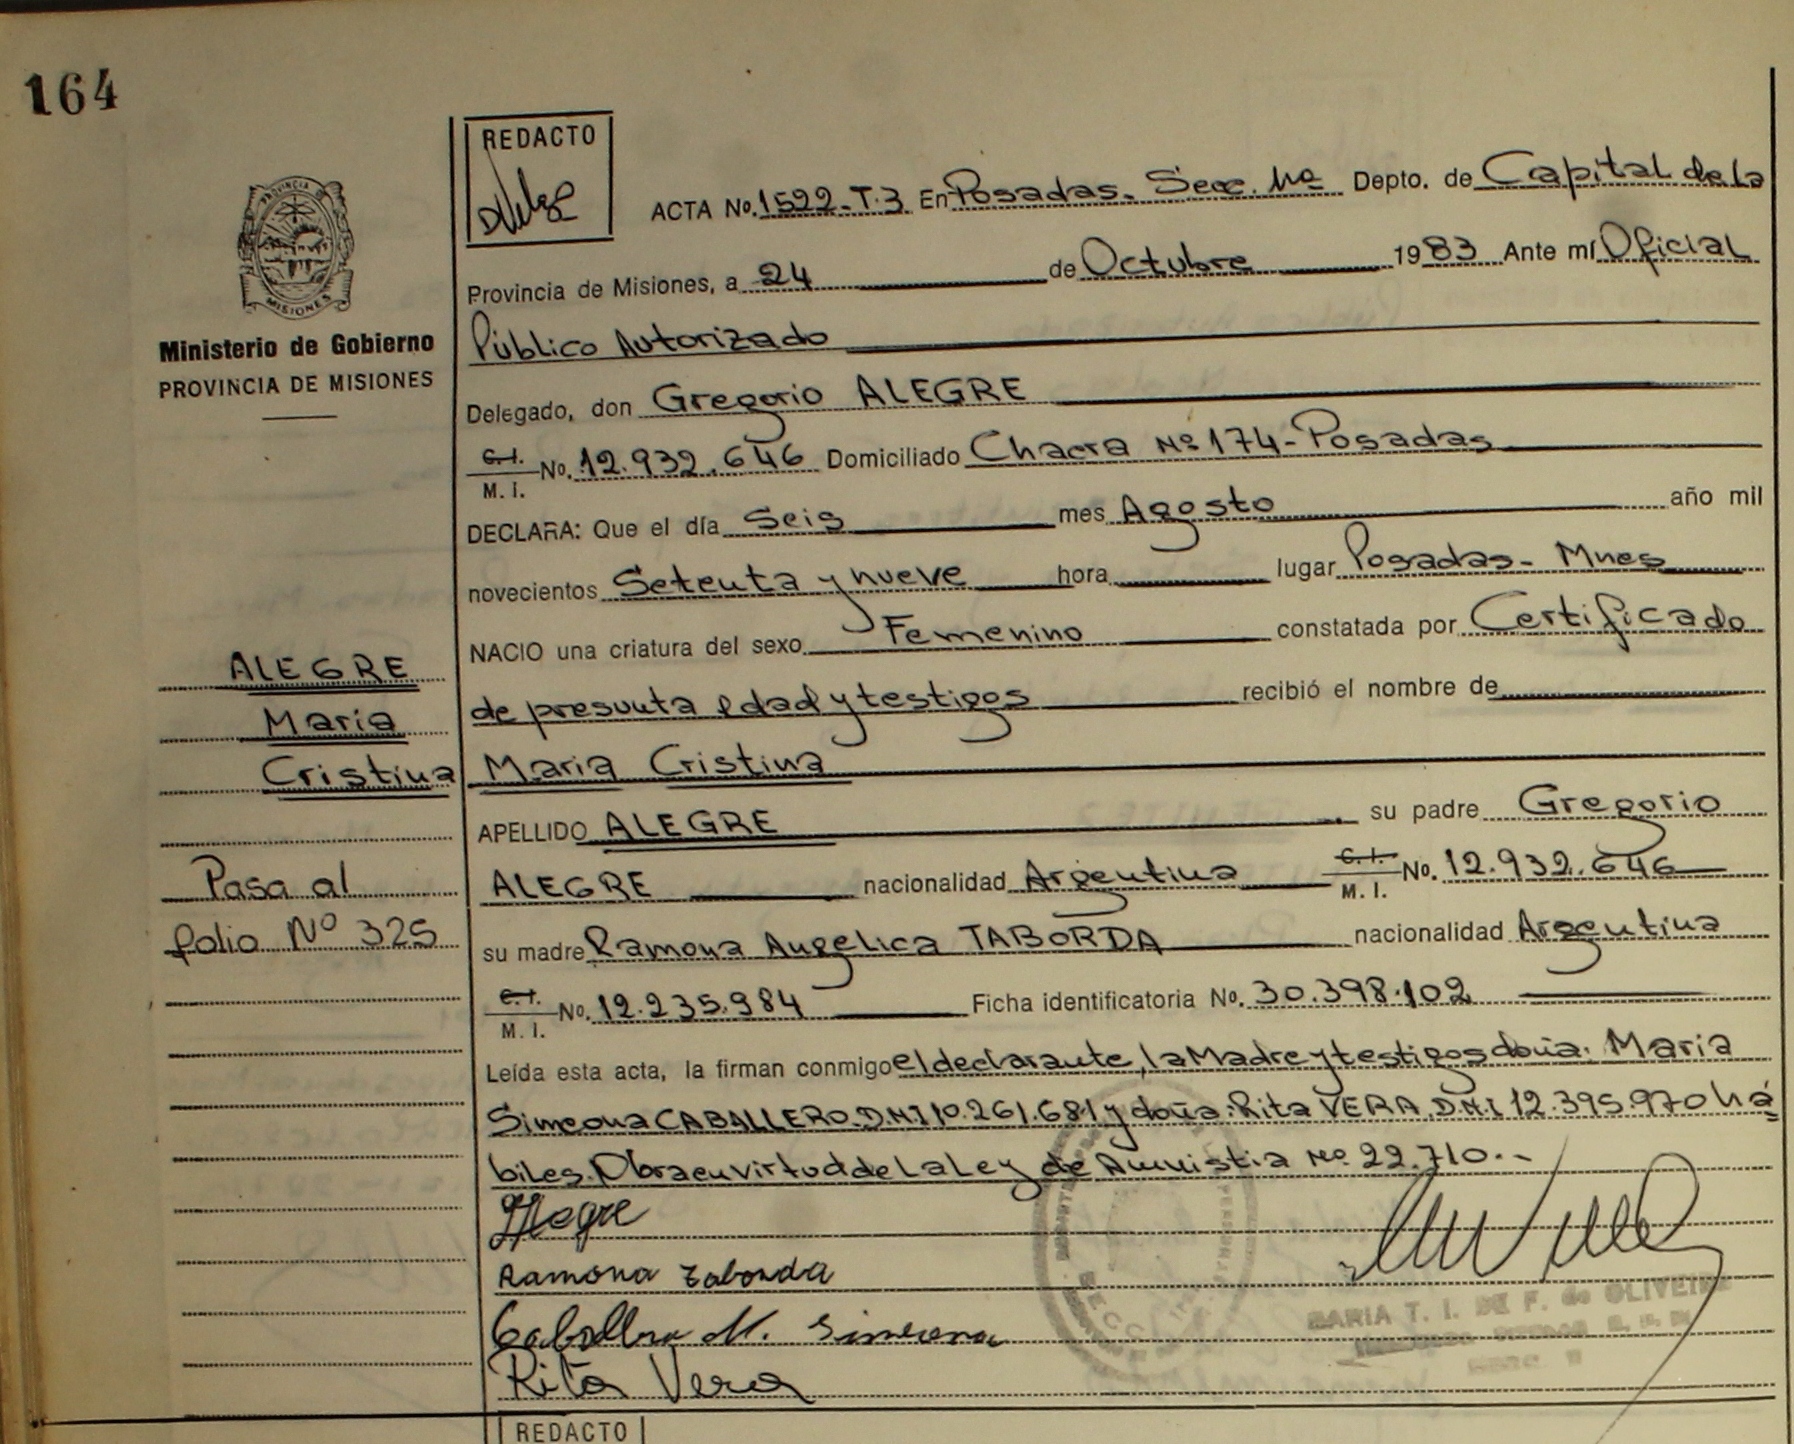 164
REDACTO
ACTA No. 1522-T.3 En Posadas. Secc. Depto. de Capital de la
Provincia de Misiones, a 24 de Octubre 1983 Ante mí Oficial
Público Autorizado
PROVINCIA DE
MISIONES
Ministerio de Gobierno
PROVINCIA DE MISIONES
Delegado, don Gregorio ALEGRE
C.I. M.I. No. 12.932.646 Domiciliado Chacra Nº 174-Posadas
DECLARA: Que el día Seis mes Agosto año mil
novecientos Setenta y nueve hora lugar Posadas- Mnes
NACIO una criatura del sexo Femenino constatada por Certificado
de presunta edad y testigos recibió el nombre de
Maria Cristina
APELLIDO ALEGRE su padre Gregorio
ALEGRE nacionalidad Argentina C.I. M.I. No. 12.932.646
su madre Ramona Angelica TABORDA nacionalidad Argentina
C.I. M.I. No. 12.235.984 Ficha identificatoria No. 30.398.102
Leída esta acta, la firman conmigo el declarante, la Madre y testigos doña: Maria
Simeona CABALLERO. D.N.I 10.261.681 y doña: Rita VERA, D.N.I 12.395.970 há
biles. Obra en virtud de la Ley de Amnistia Nº 22.710.-
ALEGRE
Maria
Cristina
Pasa al
folio Nº 325
Alegre
Ramona Taborda
Caballero M. Simeona
Rita Vera
MARIA T. I. DE F. de OLIVEIRA
REDACTO